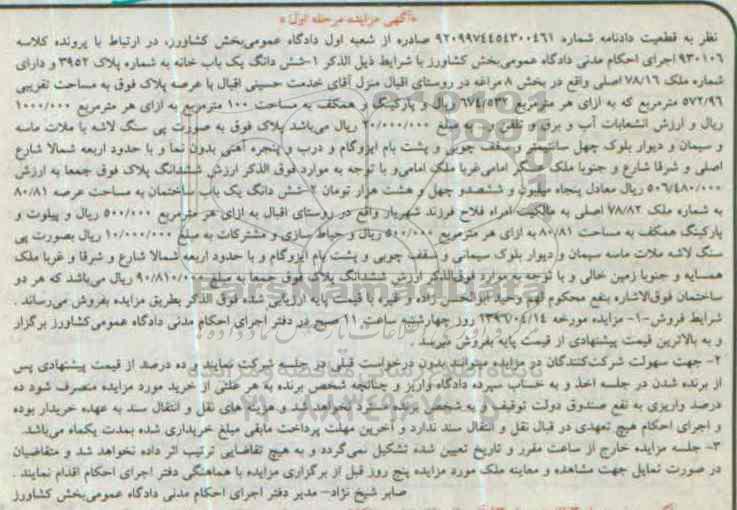 «آگهی مزایده مرحله اول»
نظر به قطعیت دادنامه شماره ۹۲۰۹۹۷۴۴۵۴۳۰۰۴۶۱ صادره از شعبه اول دادگاه عمومی‌بخش کشاورز، در ارتباط با پرونده کلاسه
۹۳۰۱۰۶ اجرای احکام مدنی دادگاه عمومی‌بخش کشاورز با شرایط ذیل الذکر ۱-شش دانگ یک باب خانه به شماره پلاک ۳۹۵۲ و دارای
شماره ملک ۷۸/۱۶ اصلی واقع در بخش ۸ مراغه در روستای اقبال منزل آقای خدمت حسینی اقبال با عرصه پلاک فوق به مساحت تقریبی
۵۷۲/۹۶ مترمربع که به ازای هر مترمربع ۶۷۴/۵۳۲ ریال و پارکینگ و همکف به مساحت ۱۰۰ مترمربع به ازای هر مترمربع ۱۰۰۰/۰۰۰
ریال و ارزش انشعابات آب و برق و تلفن به مبلغ ۲۰/۰۰۰/۰۰۰ ریال می‌باشد پلاک فوق به صورت پی سنگ لاشه با ملات ماسه
و سیمان و دیوار بلوک چهل سانتیمتر و سقف چوبی و پشت بام ایزوگام و درب و پنجره آهنی بدون نما و با حدود اربعه شمالا شارع
اصلی و شرقا شارع و جنوبا ملک عسگر امامی‌غربا ملک امامی‌و با توجه به موارد فوق الذکر ارزش ششدانگ پلاک فوق جمعا به ارزش
۵۰۶/۴۸۰/۰۰۰ ریال معادل پنجاه میلیون و ششصدو چهل و هشت هزار تومان ۲-شش دانگ یک باب ساختمان به مساحت عرصه ۸۰/۸۱
به شماره ملک ۷۸/۸۲ اصلی به مالکیت امراه فلاح فرزند شهریار واقع در روستای اقبال به ازای هر مترمربع ۵۰۰/۰۰۰ ریال و پیلوت و
پارکینگ همکف به مساحت ۸۰/۸۱ به ازای هر مترمربع ۵۰۰/۰۰۰ ریال و حیاط سازی و مشترکات به مبلغ ۱۰/۰۰۰/۰۰۰ ریال بصورت پی
سنگ لاشه ملات ماسه سیمان و دیوار بلوک سیمانی و سقف چوبی و پشت بام ایزوگام و با حدود اربعه شمالا شارع و شرقا و غربا ملک
همسایه و جنوبا زمین خالی و با توجه به موارد فوق‌الذکر ارزش ششدانگ پلاک فوق جمعا به مبلغ ۹۰/۸۱۰/۰۰۰ ریال می‌باشد که هر دو
ساختمان فوق‌الاشاره بنفع محکوم لهم وحید ابوالحسن زاده و غیره با قیمت پایه ارزیابی شده فوق الذکر بطریق مزایده بفروش می‌رساند .
شرایط فروش-۱- مزایده مورخه ۱۳۹۶/۰۴/۱۴ روز چهارشنبه ساعت ۱۱ صبح در دفتر اجرای احکام مدنی دادگاه عمومی‌کشاورز برگزار
و به بالاترین قیمت پیشنهادی از قیمت پایه بفروش میرسد .
۲- جهت سهولت شرکت‌کنندگان در مزایده میتوانند بدون درخواست قبلی در جلسه شرکت نمایند و ده درصد از قیمت پیشنهادی پس
از برنده شدن در جلسه اخذ و به حساب سپرده دادگاه واریز و چنانچه شخص برنده به هر علتی از خرید مورد مزایده منصرف شود ده
درصد واریزی به نفع صندوق دولت توقیف و به شخص برنده مسترد نخواهد شد و هزینه های نقل و انتقال سند به عهده خریدار بوده
و اجرای احکام هیچ تعهدی در قبال نقل و انتقال سند ندارد و آخرین مهلت پرداخت مابقی مبلغ خریداری شده بمدت یکماه می‌باشد.
۳- جلسه مزایده خارج از ساعت مقرر و تاریخ تعیین شده تشکیل نمی‌گردد و به هیچ تقاضایی ترتیب اثر داده نخواهد شد و متقاضیان
در صورت تمایل جهت مشاهده و معاینه ملک مورد مزایده پنج روز قبل از برگزاری مزایده با هماهنگی دفتر اجرای احکام اقدام نمایند .
صابر شیخ نژاد- مدیر دفتر اجرای احکام مدنی دادگاه عمومی‌بخش کشاورز
ParsNamadData